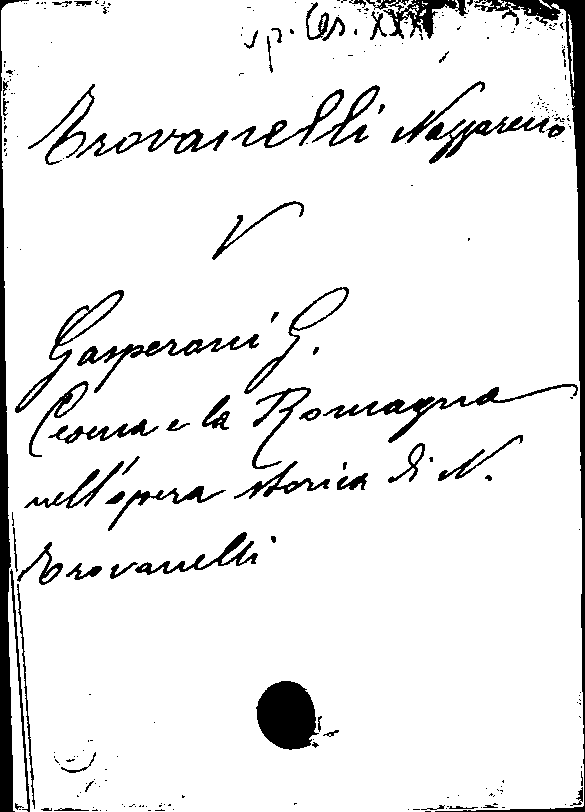 op. Ces. XXXI
Trovanelli Nazzareno
V
Gasperoni G.
Cesena e la Romagna
nell'opera storica di N.
Trovanelli